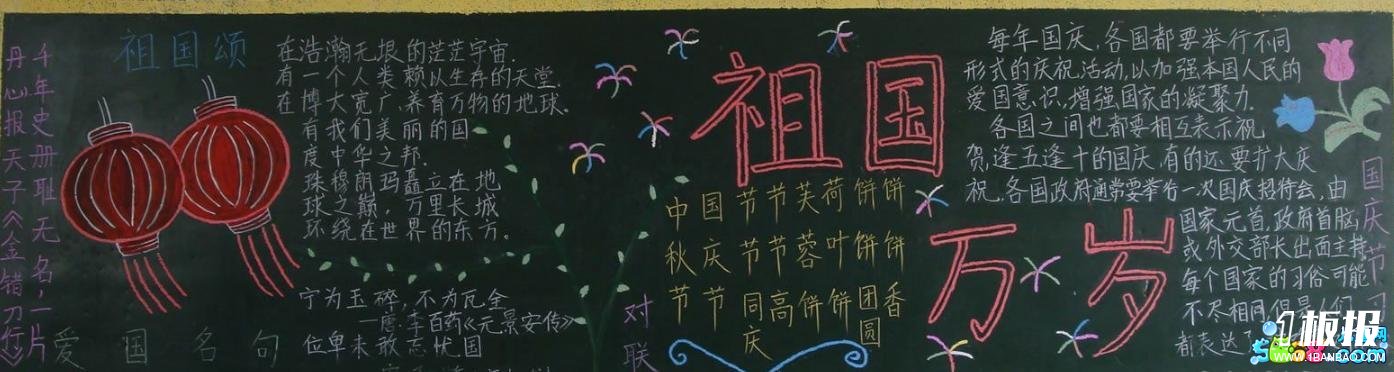 千年史册耻无名,一片
丹心报天子《金错刀行》
祖国颂
在浩瀚无垠的茫茫宇宙.
有一个人类赖以生存的天堂.
在博大宽广.养育万物的地球.
有我们美丽的国
度中华之邦.
珠穆朗玛矗立在地
球之巅,万里长城
环绕在世界的东方.
爱国名句
宁为玉碎,不为瓦全
一唐.李百药《元景安传》
位卑未敢忘忧国
祖国
万岁
对联
中秋节
国庆节
节节同庆
节节高
芙蓉饼
荷叶饼
饼饼团圆
饼饼香
每年国庆,各国都要举行不同
形式的庆祝活动,以加强本国人民的
爱国意识,增强国家的凝聚力.
各国之间也都要相互表示祝
贺,逢五逢十的国庆,有的还要扩大庆
祝.各国政府通常要举行一次国庆招待会,由
国家元首,政府首脑,
或外交部长出面主持.
每个国家的习俗可能
不尽相同,但是人们
都表达
国庆节
板报
WWW.1BANBAO.COM